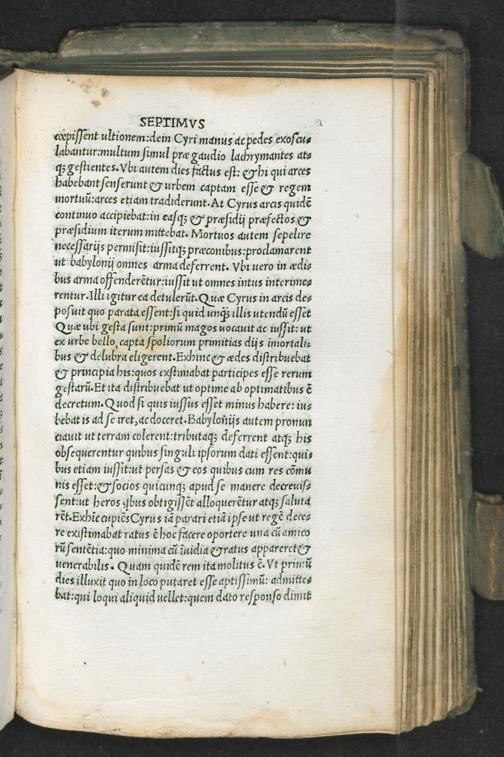 SEPTIMVS
cœpissent ultionem:dein Cyri manus ac pedes exoscu-
labantur:multum simul præ gaudio lachrymantes at-
q; gestientes. Vbi autem dies factus est: & hi qui arces
habebant senserunt & urbem captam esse & regem
mortuũ:arces etiam tradiderunt. At Cyrus arcis quidẽ
continuo accipiebat:in easq; & præsidij præfectos &
præsidium iterum mittebat. Mortuos autem sepelire
necessarijs permisit:iussitq; præconibus:proclamarent
ut babylonij omnes arma deferrent. Vbi uero in ædi-
bus arma offenderẽtur:iussit ut omnes intus interime-
rentur. Illi igitur ea detulerũt. Quæ Cyrus in arcis de-
posuit quo parata essent:si quid unq̃ illis utendũ esset
Quæ ubi gesta sunt:primũ magos uocauit ac iussit: ut
ex urbe bello capta spoliorum primitias dijs imortali-
bus & delubra eligerent. Exhinc & ædes distribuebat
& principia his:quos existimabat participes esse rerum
gestarũ. Et ita distribuebat ut optime ab optimatibus ẽ
decretum. Quod si quis iussus esset minus habere: iu-
bebat is ad se iret, ac doceret. Babylonijs autem pronun
ciauit ut terram colerent:tributaq; deferrent atq; his
obsequerentur quibus singuli ipsorum dati essent:qui-
bus etiam iussit:ut persas & eos quibus cum res cõmu
nis esset:& socios quicunq; apud se manere decreuis-
sent:ut heros q̃bus obtigissẽt alloquerẽtur atq; saluta
rẽt. Exhĩc cupiẽs Cyrus iã parari etiã ipse ut regẽ dece
re existimabat ratus ẽ hoc facere oportere una cũ amico
rũ sentẽtia:quo minima cũ ĩuidia & ratus appareret &
uenerabilis. Quam quidẽ rem ita molitus ẽ. Vt primũ
dies illuxit quo in loco putaret esse aptissimũ: admitte-
bat:qui loqui aliquid uellet:quem dato responso dimit